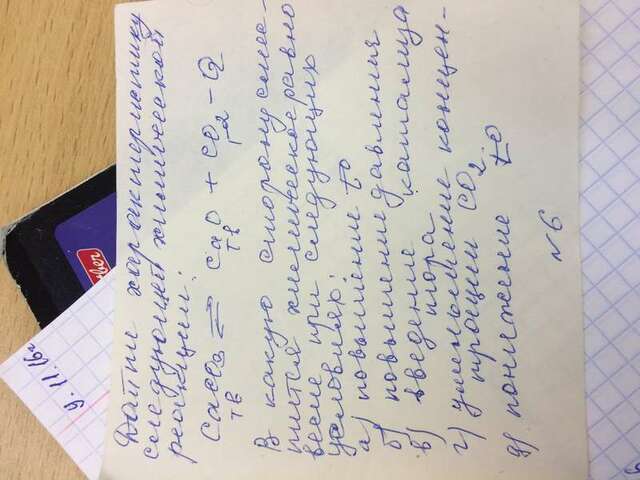 Дайти характеристику
следующей химической
реакции:
CaCO₃ ⇄ CaO + CO₂ - Q
тв тв
В какую сторону смес-
тится химическое равно
весие при следующих
условиях:
а) повышение t°
б) повышение давления
в) введение катализа
тора
г) уменьшение концен-
трации CO₂
д) понижение t°
N6
9.11.16г